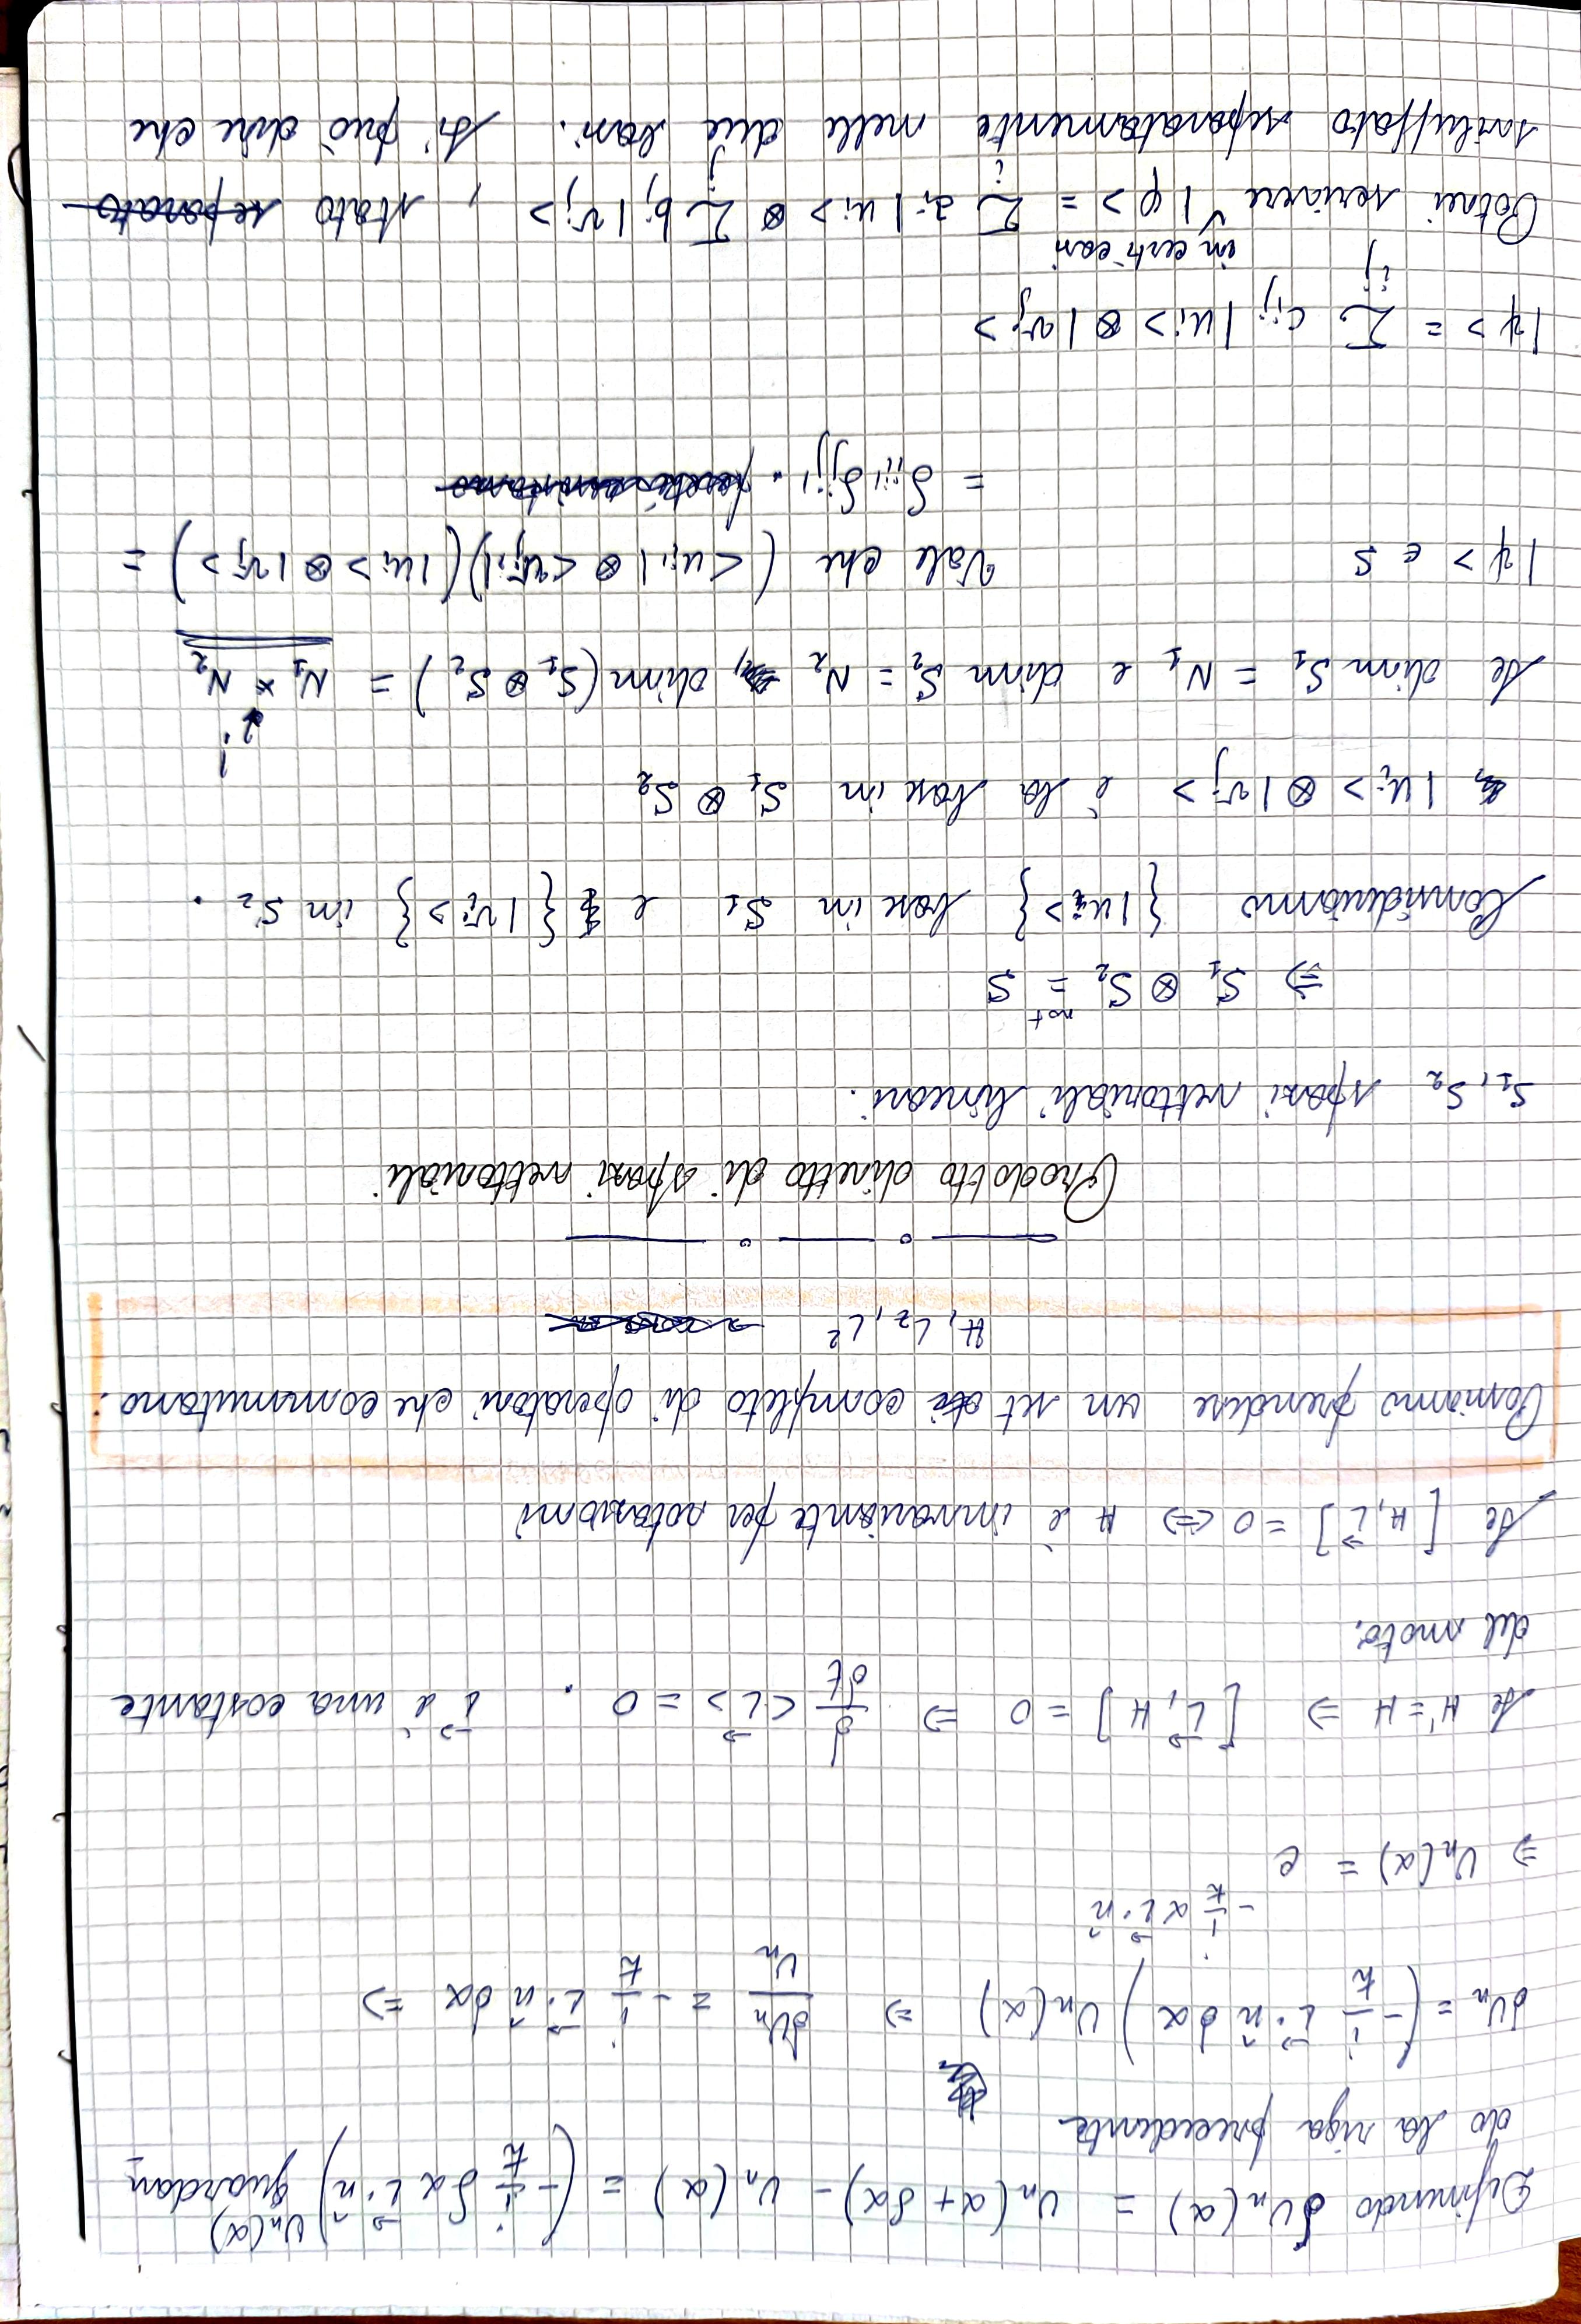 Definendo δUn(α) = Un(α+δα) - Un(α) = (-i/ħ δα L⃗·n̂) Un(α) guardan
do la riga precedente
δUn = (-i/ħ L⃗·n̂ δα) Un(α) ⇒ δUn/Un = -i/ħ L⃗·n̂ δα ⇒
⇒ Un(α) = e^(-i/ħ α L⃗·n̂)
Se H'=H ⇒ [L⃗,H] = 0 ⇒ d/dt <L⃗> = 0. L⃗ è una costante
del moto.
Se [H,L⃗] = 0 <=> H è invariante per rotazioni
Possiamo prendere un set completo di operatori che commutano.
H, Lz, L²
Prodotto diretto di spazi vettoriali
S1, S2 spazi vettoriali lineari.
⇒ S1 ⊗ S2 =not S
Consideriamo {|ui>} base in S1 e {|vi>} in S2.
|ui> ⊗ |vj> è la base in S1 ⊗ S2
!
Se dim S1 = N1 e dim S2 = N2, dim(S1 ⊗ S2) = N1 × N2
|ψ> ∈ S Vale che (<ui'| ⊗ <vj'|)(|ui> ⊗ |vj>) =
= δii' δjj'.
|ψ> = Σij cij |ui> ⊗ |vj>
in certi casi
Potrei scrivere |φ> = Σi ai |ui> ⊗ Σj bj |vj>, stato separato
sviluppato separatamente nelle due basi. Si può dire che